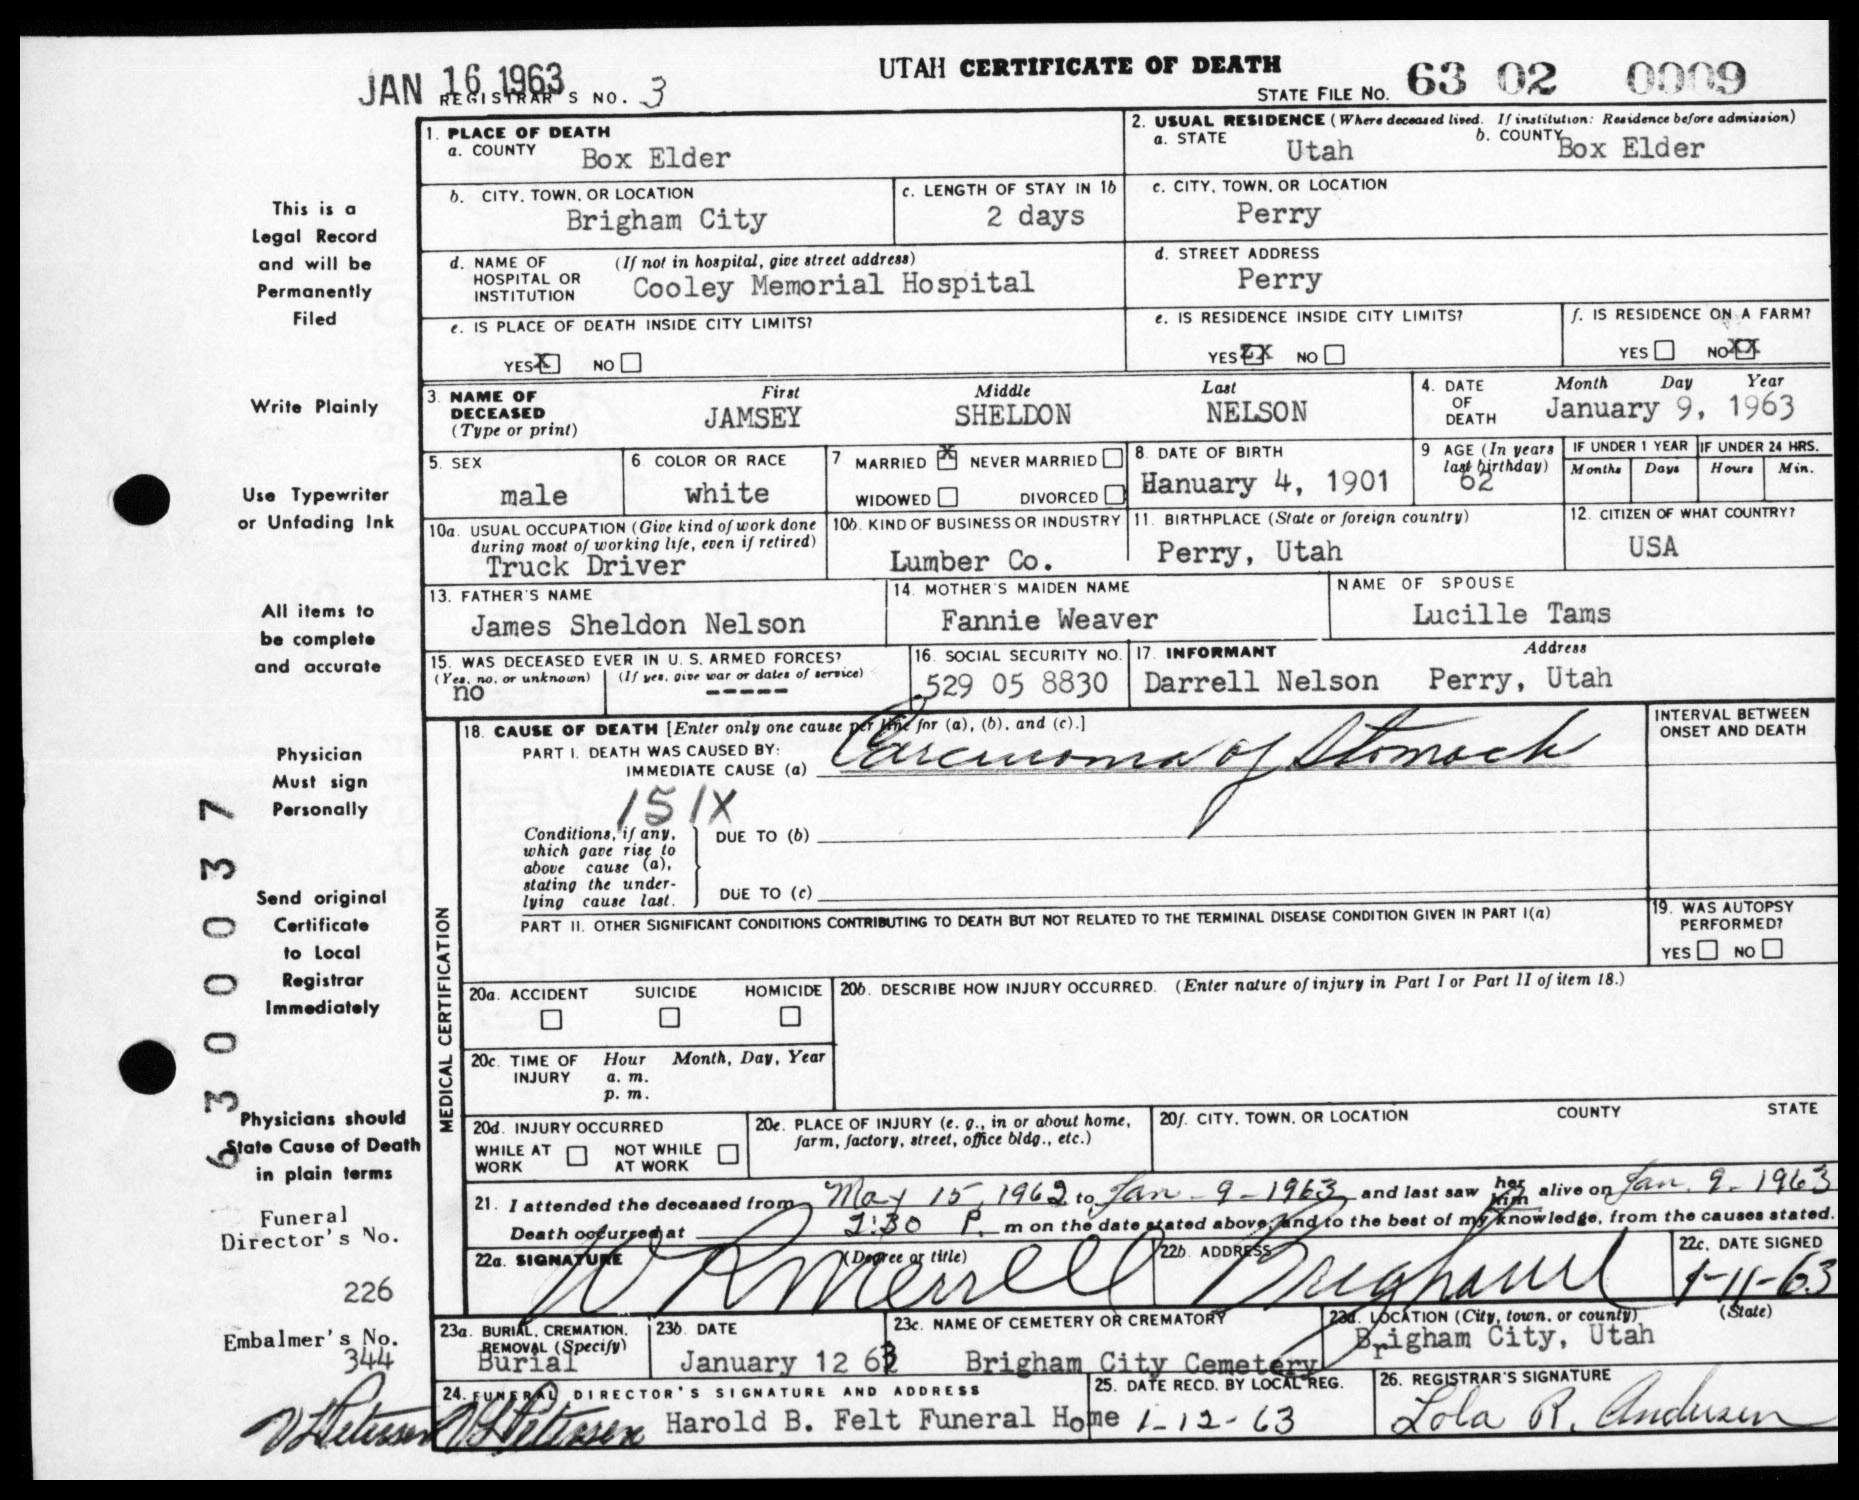 JAN 16 1963
UTAH CERTIFICATE OF DEATH
REGISTRAR'S NO. 3
STATE FILE NO. 63 02 0009
1. PLACE OF DEATH
a. COUNTY Box Elder
2. USUAL RESIDENCE (Where deceased lived. If institution: Residence before admission)
a. STATE Utah b. COUNTY Box Elder
b. CITY, TOWN, OR LOCATION Brigham City
c. LENGTH OF STAY IN 1b 2 days
c. CITY, TOWN, OR LOCATION Perry
d. NAME OF HOSPITAL OR INSTITUTION (If not in hospital, give street address)
Cooley Memorial Hospital
d. STREET ADDRESS Perry
e. IS PLACE OF DEATH INSIDE CITY LIMITS?
YES X NO
e. IS RESIDENCE INSIDE CITY LIMITS?
YES XX NO
f. IS RESIDENCE ON A FARM?
YES NO XX
3. NAME OF DECEASED (Type or print)
First Middle Last
JAMSEY SHELDON NELSON
4. DATE OF DEATH Month Day Year
January 9, 1963
5. SEX male
6. COLOR OR RACE white
7 MARRIED X NEVER MARRIED
WIDOWED DIVORCED
8. DATE OF BIRTH Hanuary 4, 1901
9 AGE (In years last birthday) 62
IF UNDER 1 YEAR Months Days
IF UNDER 24 HRS. Hours Min.
10a. USUAL OCCUPATION (Give kind of work done during most of working life, even if retired)
Truck Driver
10b. KIND OF BUSINESS OR INDUSTRY
Lumber Co.
11. BIRTHPLACE (State or foreign country)
Perry, Utah
12. CITIZEN OF WHAT COUNTRY?
USA
13. FATHER'S NAME
James Sheldon Nelson
14. MOTHER'S MAIDEN NAME
Fannie Weaver
NAME OF SPOUSE
Lucille Tams
15. WAS DECEASED EVER IN U. S. ARMED FORCES?
(Yes, no, or unknown) (If yes, give war or dates of service)
no -----
16. SOCIAL SECURITY NO.
529 05 8830
17. INFORMANT Address
Darrell Nelson Perry, Utah
MEDICAL CERTIFICATION
18. CAUSE OF DEATH [Enter only one cause per line for (a), (b), and (c).]
PART I. DEATH WAS CAUSED BY:
IMMEDIATE CAUSE (a) Carcinoma of Stomach
INTERVAL BETWEEN ONSET AND DEATH
151X
Conditions, if any, which gave rise to above cause (a), stating the underlying cause last.
DUE TO (b)
DUE TO (c)
PART II. OTHER SIGNIFICANT CONDITIONS CONTRIBUTING TO DEATH BUT NOT RELATED TO THE TERMINAL DISEASE CONDITION GIVEN IN PART I(a)
19. WAS AUTOPSY PERFORMED?
YES NO
20a. ACCIDENT SUICIDE HOMICIDE
20b. DESCRIBE HOW INJURY OCCURRED. (Enter nature of injury in Part I or Part II of item 18.)
20c. TIME OF INJURY Hour Month, Day, Year
a. m.
p. m.
20d. INJURY OCCURRED
WHILE AT WORK NOT WHILE AT WORK
20e. PLACE OF INJURY (e. g., in or about home, farm, factory, street, office bldg., etc.)
20f. CITY, TOWN, OR LOCATION COUNTY STATE
21. I attended the deceased from May 15, 1962 to Jan - 9 - 1963 and last saw her him alive on Jan. 9 - 1963
Death occurred at 2:30 P. m on the date stated above, and to the best of my knowledge, from the causes stated.
22a. SIGNATURE (Degree or title)
W R Merrell
22b. ADDRESS
Brigham
22c. DATE SIGNED
1-11-63
23a. BURIAL, CREMATION, REMOVAL (Specify)
Burial
23b. DATE
January 12 63
23c. NAME OF CEMETERY OR CREMATORY
Brigham City Cemetery
23d. LOCATION (City, town, or county) (State)
Brigham City, Utah
24. FUNERAL DIRECTOR'S SIGNATURE AND ADDRESS
Harold B. Felt Funeral Home
25. DATE RECD. BY LOCAL REG.
1-12-63
26. REGISTRAR'S SIGNATURE
Lola R. Andersen
This is a
Legal Record
and will be
Permanently
Filed
Write Plainly
Use Typewriter
or Unfading Ink
All items to
be complete
and accurate
Physician
Must sign
Personally
Send original
Certificate
to Local
Registrar
Immediately
Physicians should
State Cause of Death
in plain terms
Funeral
Director's No.
226
Embalmer's No.
344
6300037